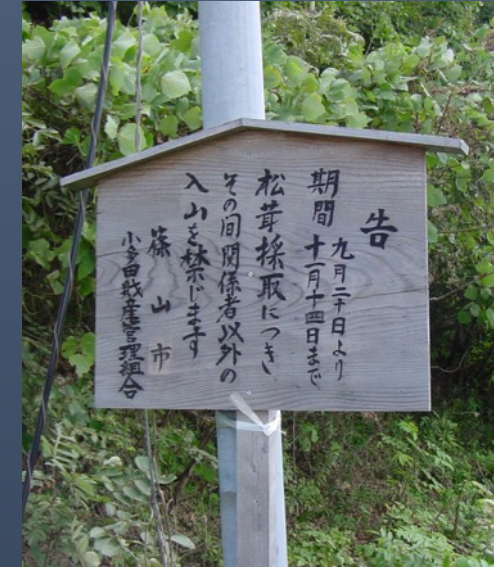 告
期間 九月二十日より
十一月十四日まで
松茸採取につき
その間関係者以外の
入山を禁じます
篠山市
小多田財産管理組合